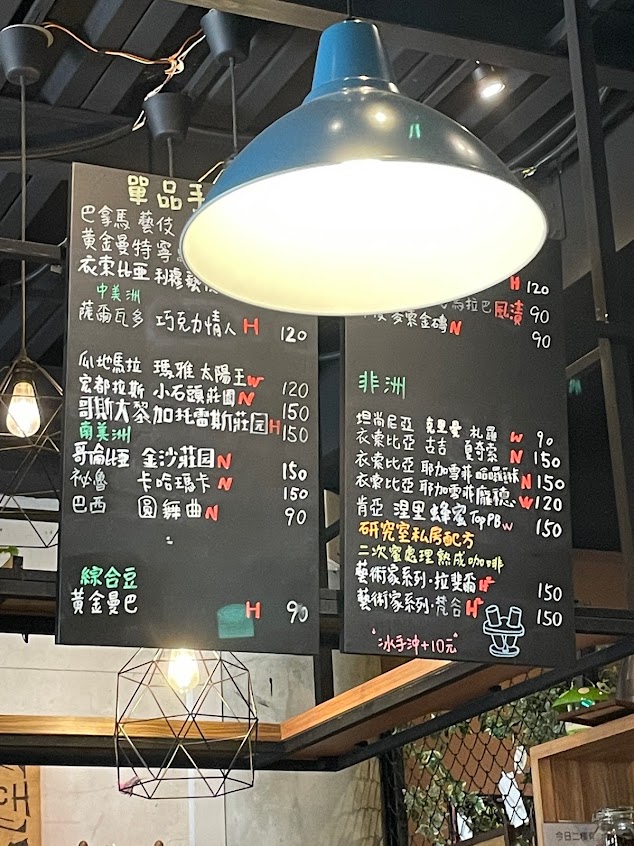 單品手
巴拿馬 藝伎
黃金曼特寧
衣索比亞 利穆
中美洲
薩爾瓦多 巧克力情人 H 120
瓜地馬拉 瑪雅 太陽王 W 120
宏都拉斯 小石頭莊園 N 150
哥斯大黎加托雷斯莊园 H 150
南美洲
哥倫比亞 金沙莊园 N 150
祕魯 卡哈瑪卡 N 150
巴西 圓舞曲 N 90
綜合豆
黃金曼巴 H 90
H 120
烏拉巴 風漬 90
麥索金磚 N 90
非洲
坦尚尼亞 克里曼札羅 W 90
衣索比亞 古吉 夏奇索 N 150
衣索比亞 耶加雪菲 N 150
衣索比亞 耶加雪菲 W 120
肯亞 涅里 蜂蜜 Top PB W 150
研究室私房配方
二次蜜處理熟成咖啡
藝術家系列·拉斐爾 H 150
藝術家系列·梵谷 H 150
冰手沖+10元
今日二樓
CH